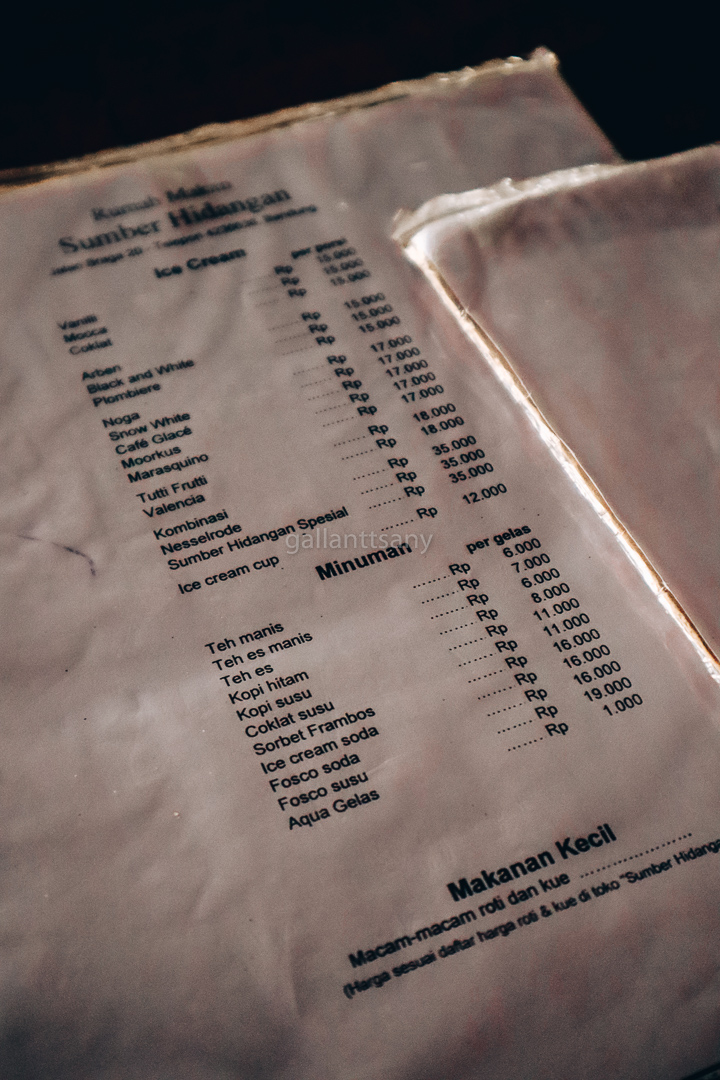 Rumah Makan
Sumber Hidangan
Jalan Braga 20 - Telepon Bandung
Ice Cream per porsi
Vanili ........ Rp 15.000
Mocca ........ Rp 15.000
Coklat ........ Rp 15.000
Arben ........ Rp 15.000
Black and White ........ Rp 15.000
Plombiere ........ Rp 15.000
Noga ........ Rp 17.000
Snow White ........ Rp 17.000
Café Glacé ........ Rp 17.000
Moorkus ........ Rp 17.000
Marasquino ........ Rp 17.000
Tutti Frutti ........ Rp 18.000
Valencia ........ Rp 18.000
Kombinasi ........ Rp 35.000
Nesselrode ........ Rp 35.000
Sumber Hidangan Spesial ........ Rp 35.000
Ice cream cup ........ Rp 12.000
gallanttsany
Minuman per gelas
Teh manis ........ Rp 6.000
Teh es manis ........ Rp 7.000
Teh es ........ Rp 6.000
Kopi hitam ........ Rp 8.000
Kopi susu ........ Rp 11.000
Coklat susu ........ Rp 11.000
Sorbet Frambos ........ Rp 16.000
Ice cream soda ........ Rp 16.000
Fosco soda ........ Rp 16.000
Fosco susu ........ Rp 19.000
Aqua Gelas ........ Rp 1.000
Makanan Kecil
Macam-macam roti dan kue ........................
(Harga sesuai daftar harga roti & kue di toko "Sumber Hidanga